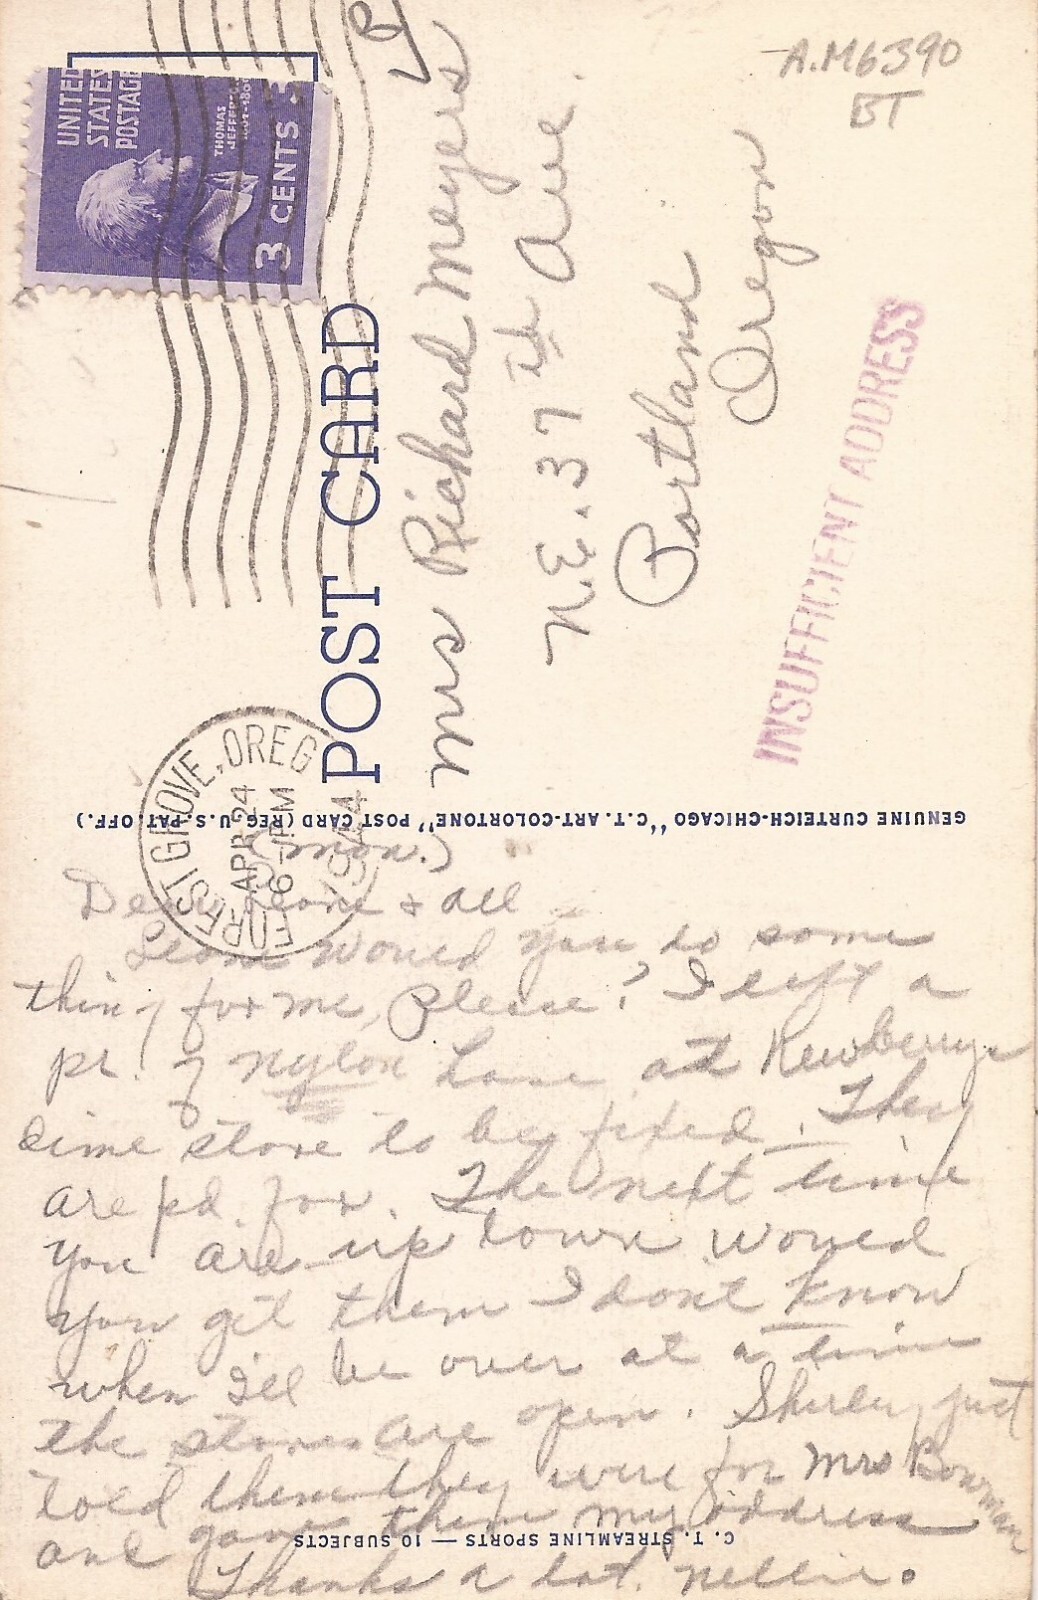 A.M6390
BT
UNITED
STATES
POSTAGE
THOMAS
JEFFERSON
3 CENTS 3
FOREST GROVE, OREG
APR 24
6-PM
1944
POST CARD
Mrs Richard Meyers
N.E. 37th Ave.
Portland
Oregon
INSUFFICIENT ADDRESS
GENUINE CURTEICH-CHICAGO "C.T. ART-COLORTONE" POST CARD (REG. U.S. PAT. OFF.)
(mon.)
Dear Leone & all
Leone would you do some
thing for me, please? I left a
pr. of nylon hose at Newberrys
dime store to be fixed. They
are pd. for. The next time
you are up town would
you get them I don't know
when I'll be over at a time
the stores are open. Shirley just
told them they were for Mrs Bowman
and gave them my address
Thanks a lot. Nellie.
C. T. STREAMLINE SPORTS — 10 SUBJECTS